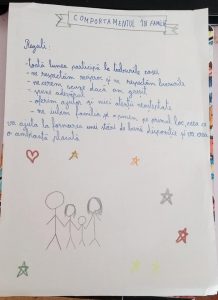 COMPORTAMENTUL ÎN FAMILIE
Reguli:
- toată lumea participă la treburile casei
- ne respectăm reciproc și ne respectăm bunurile
- ne cerem scuze dacă am greșit
- spune adevărul
- oferim ajutor și
- ne iubim familia și o punem pe primul loc, ceea ce
va ajuta la formarea unei stări de bună dispoziție și va crea
o atmosferă plăcută.